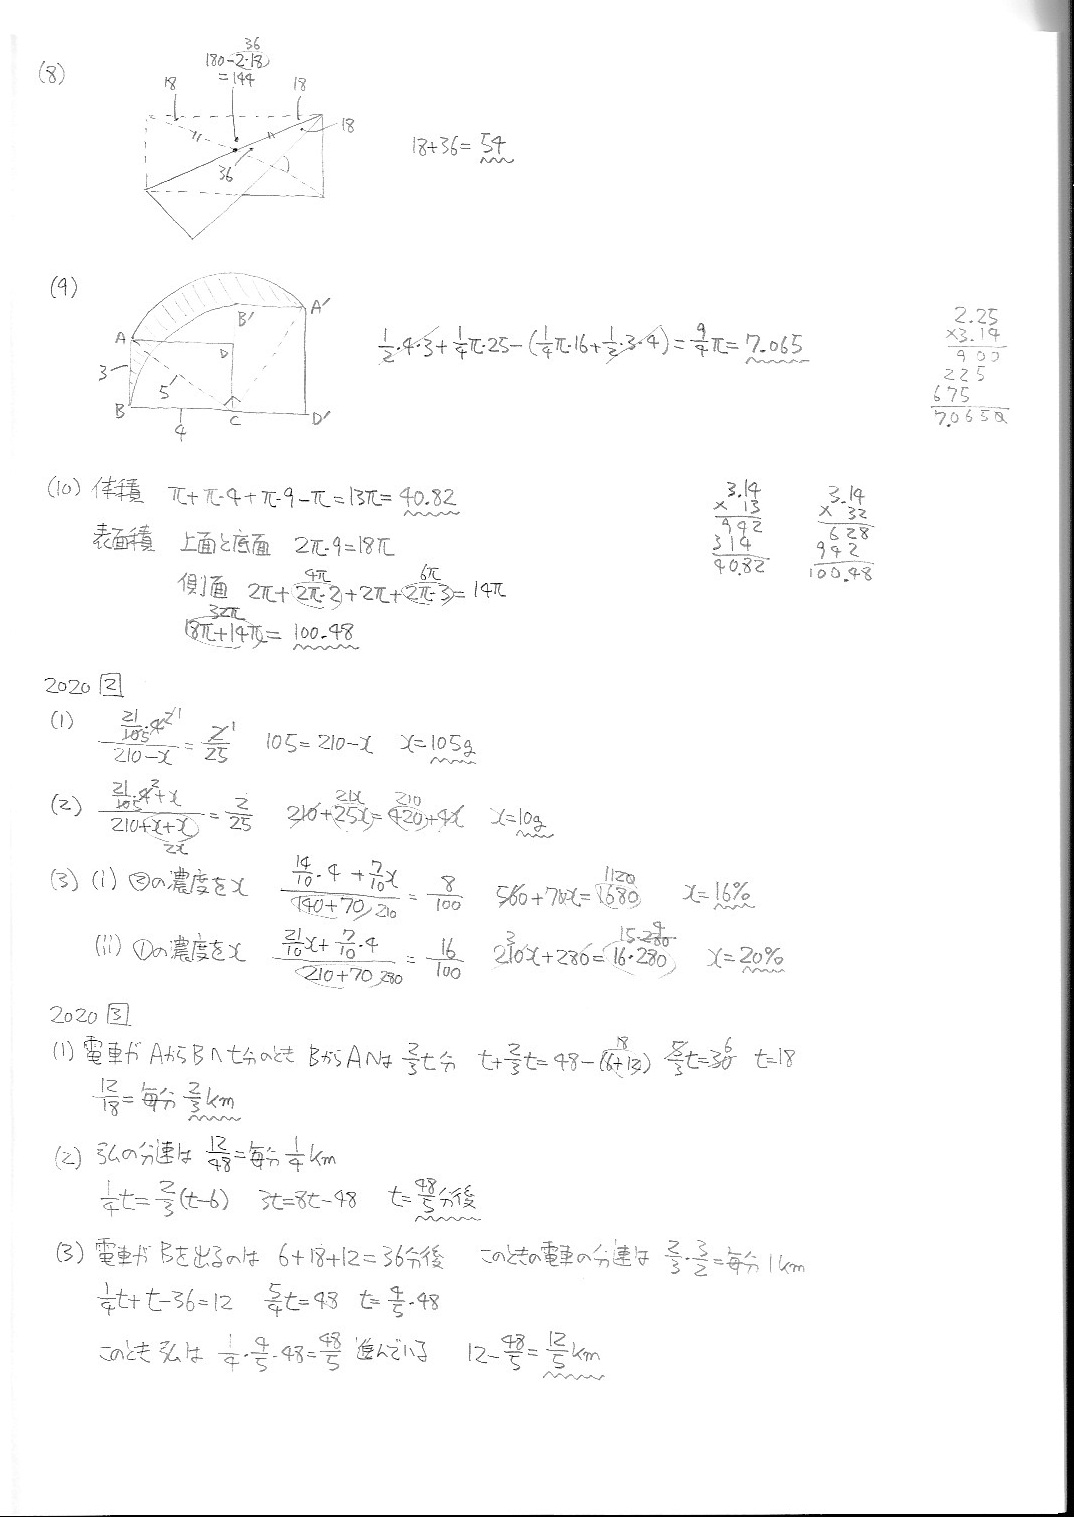 (8)
36
180-2·18
=144
18 18
18
36
18+36=54
(9)
A B' A'
D
3 5
B 4 C D'
1/2·4·3+1/4π·25-(1/4π·16+1/2·3·4)=9/4π=7.065
2.25
×3.14
900
225
675
7.0650
(10) 体積 π+π·4+π·9-π=13π=40.82
表面積 上面と底面 2π·9=18π
4π 6π
側面 2π+2π·2+2π+2π·3=14π
32π
18π+14π=100.48
3.14
× 13
942
314
40.82
3.14
× 32
628
942
100.48
2020 2
(1) (21/105·4 2 1)/(210-x)=2 1/25 105=210-x x=105g
(2) (21/105·4 2+x)/(210+x+x 2x)=2/25 210+25x 21x=420 210+4x x=10g
(3) (i) ③の濃度をx (14/10·4+7/10x)/(140+70 210)=8/100 560+70x=1680 1120 x=16%
(ii) ①の濃度をx (21/10x+7/10·4)/(210+70 280)=16/100 210x 3+280=16·280 15·280 4 x=20%
2020 3
(1) 電車がAからBへt分のとき BからAへは2/3t分 t+2/3t=48-(6+12) 18 5/3t=30 6 t=18
12/18=毎分2/3km
(2) 弘の分速は12/48=毎分1/4km
1/4t=2/3(t-6) 3t=8t-48 t=48/5分後
(3) 電車がBを出るのは 6+18+12=36分後 このときの電車の分速は 2/3·3/2=毎分1km
1/4t+t-36=12 5/4t=48 t=4/5·48
このとき弘は 1/4·4/5·48=48/5 進んでいる 12-48/5=12/5km